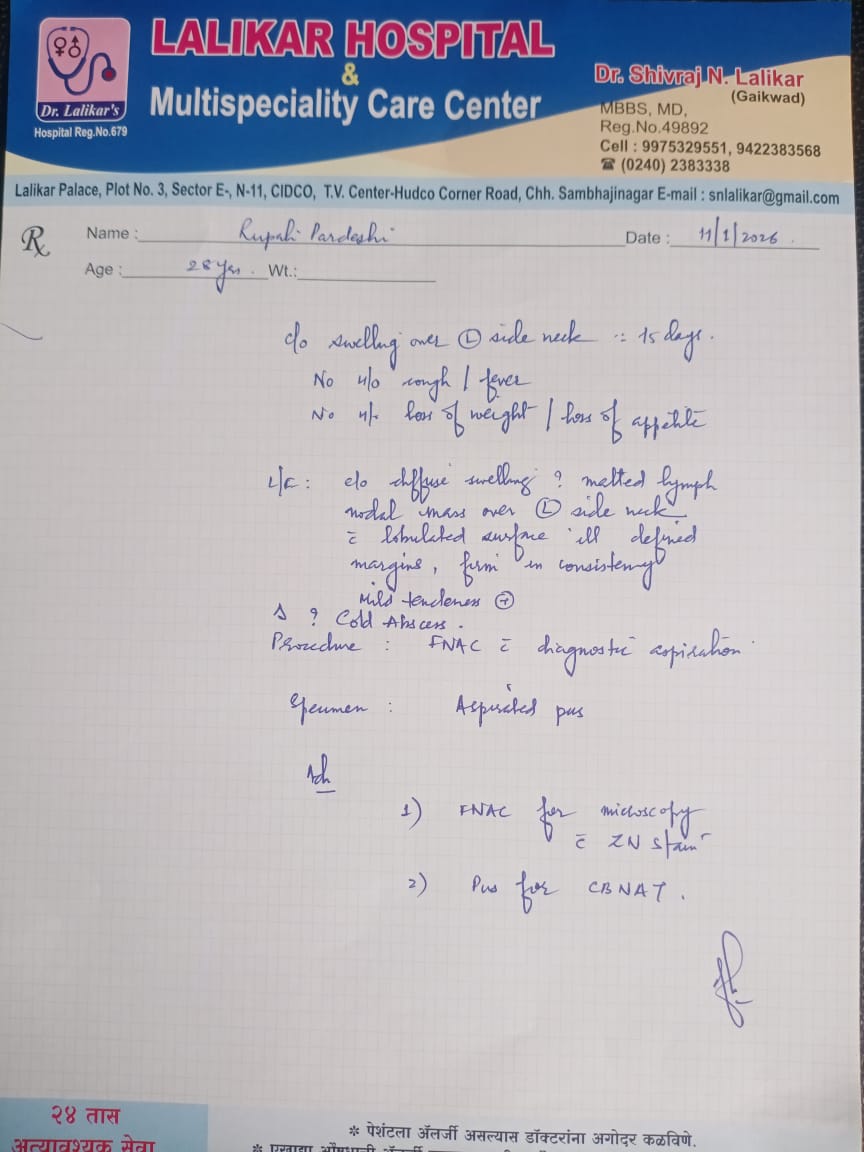 LALIKAR HOSPITAL
&
Multispeciality Care Center
Dr. Lalikar's
Hospital Reg.No.679
Dr. Shivraj N. Lalikar
(Gaikwad)
MBBS, MD,
Reg.No.49892
Cell : 9975329551, 9422383568
☎ (0240) 2383338
Lalikar Palace, Plot No. 3, Sector E-, N-11, CIDCO, T.V. Center-Hudco Corner Road, Chh. Sambhajinagar E-mail : snlalikar@gmail.com
Rx Name : Rupali Pardeshi Date : 11/1/2026
Age : 28 yrs. Wt.:
c/o swelling over (L) side neck :: 15 days.
No h/o cough / fever
No h/o loss of weight / loss of appetite
L/E : e/o diffuse swelling ? matted lymph
nodal mass over (L) side neck
c̄ lobulated surface ill defined
margins, firm in consistency
Mild tenderness (+)
Δ ? Cold Abscess.
Procedure : FNAC c̄ diagnostic aspiration
Specimen : Aspirated pus
Adv
1) FNAC for microscopy
c̄ ZN stain
2) Pus for CBNAT.
२४ तास
अत्यावश्यक सेवा
* पेशंटला ॲलर्जी असल्यास डॉक्टरांना अगोदर कळविणे.